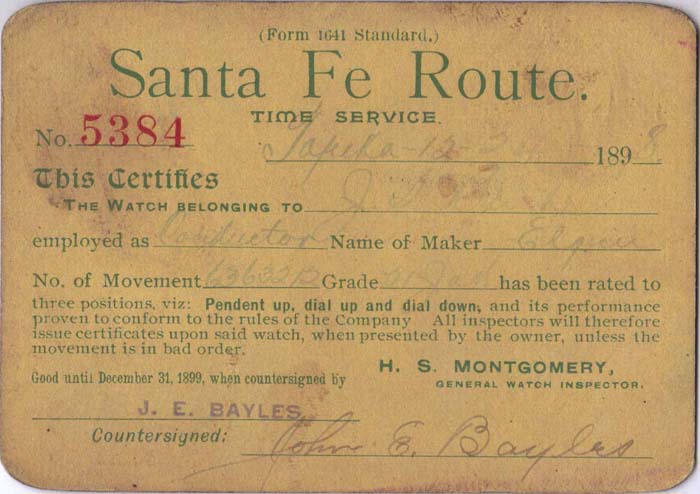 (Form 1641 Standard.)
Santa Fe Route.
TIME SERVICE.
No. 5384
Topeka-12-3 1898
This Certifies
THE WATCH BELONGING TO
employed as Conductor Name of Maker Elgin
No. of Movement Grade has been rated to
three positions, viz: Pendent up, dial up and dial down, and its performance
proven to conform to the rules of the Company All inspectors will therefore
issue certificates upon said watch, when presented by the owner, unless the
movement is in bad order.
H. S. MONTGOMERY,
GENERAL WATCH INSPECTOR.
Good until December 31, 1899, when countersigned by
J. E. BAYLES
Countersigned: John E. Bayles